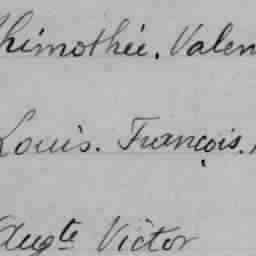 Thimothée. Valen
Louis. François.
Augte Victor